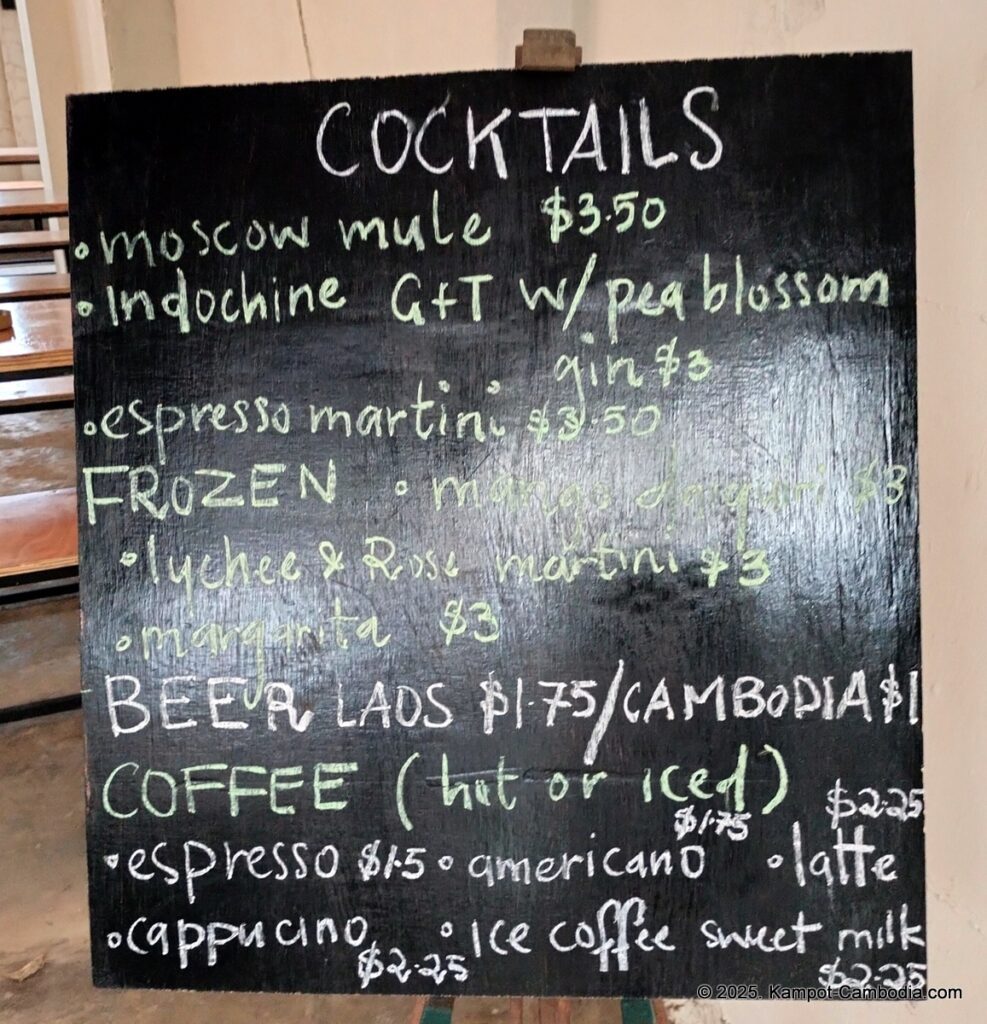 COCKTAILS
• moscow mule $3.50
• Indochine G+T w/ pea blossom
gin $3
• espresso martini $3.50
FROZEN • mango daiquiri $3
• lychee & Rose martini $3
• margarita $3
BEER LAOS $1.75/CAMBODIA $1
COFFEE (hot or iced)
• espresso $1.5 • americano $1.75 • latte $2.25
• cappucino $2.25 • ice coffee sweet milk $2.25
© 2025. Kampot-Cambodia.com